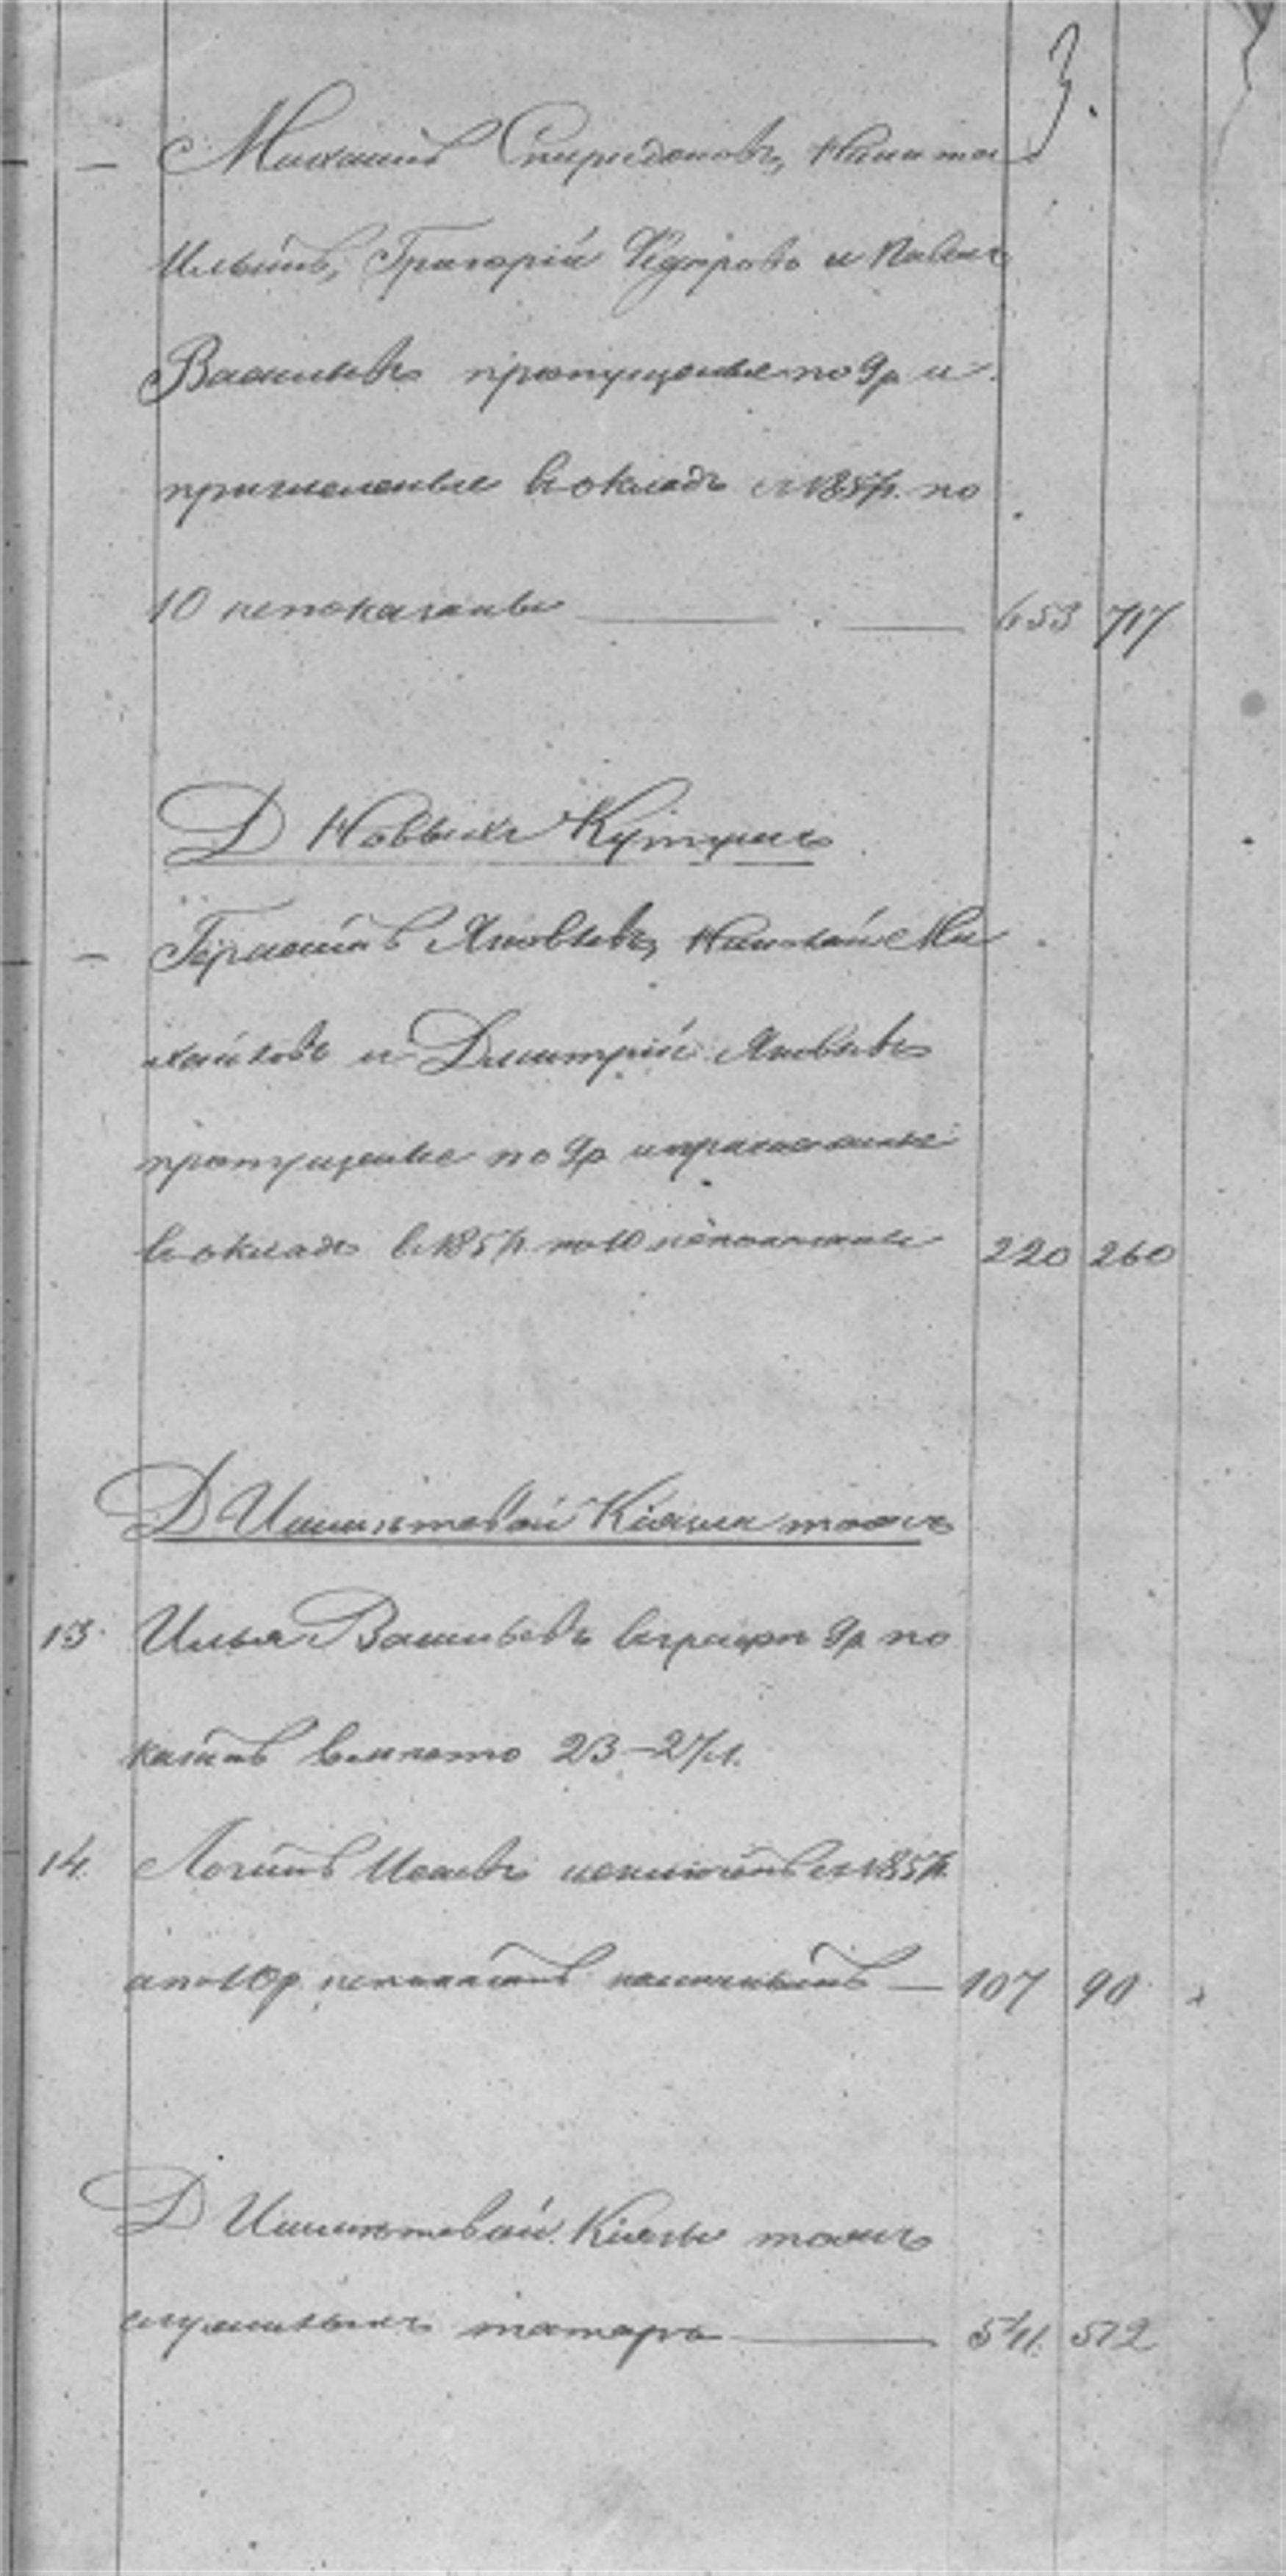 3.
— Михаилъ Спиридоновъ, Никита
Ильинъ, Григорій Ѳедоровъ и Павелъ
Васильевъ пропущенные по 9 р. и
причисленные въ окладъ съ 1857 г. по
10 непоказаны — 653 717
Д Новыхъ Кутушъ
— Герасимъ Яковлевъ, Николай Ми
хайловъ и Дмитрій Яковлевъ
пропущенные по 9 р и причисленные
въ окладъ въ 1857 г. по 10 непоказаны 220 260
Д Ишметевой Кіязли тожъ
13. Илья Васильевъ въ графѣ 9 р. по
казанъ вмѣсто 23 – 27 л.
14. Логинъ Исаевъ исключенъ съ 1857 г.
а по 10 р. непоказанъ — 107 90
Д Ишметевой Кіязли тожъ
служилыхъ татаръ — 541. 512